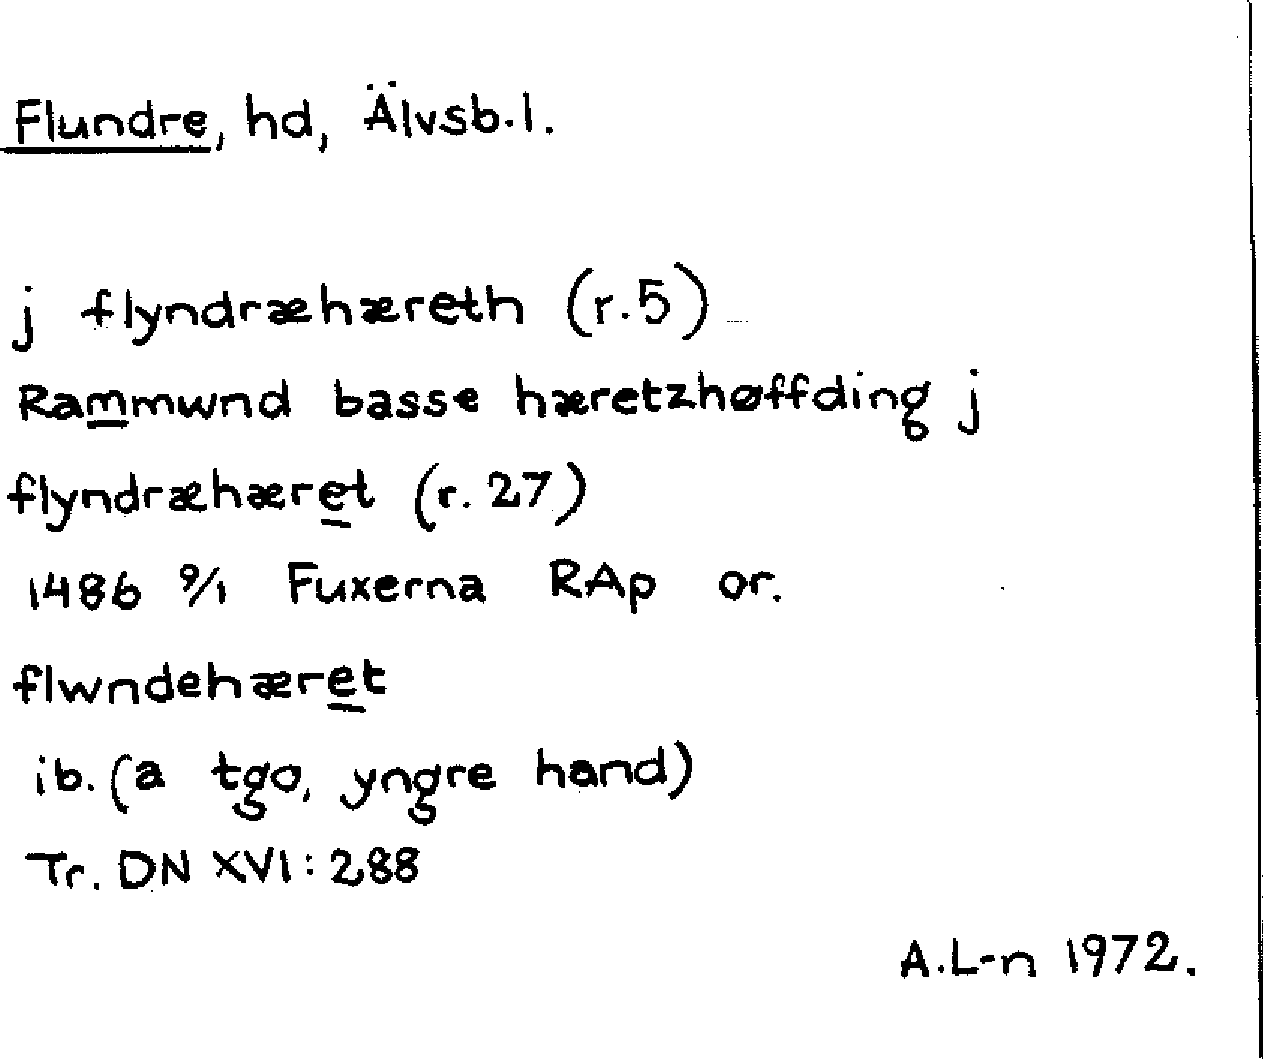 Flundre, hd, Älvsb.l.
j flyndræhæreth (r.5)
Rammwnd basse hæretzhøffding j
flyndræhæret (r. 27)
1486 9/1 Fuxerna RAp or.
flwndehæret
ib. (a tgo, yngre hand)
Tr. DN XVI: 288
A.L-n 1972.